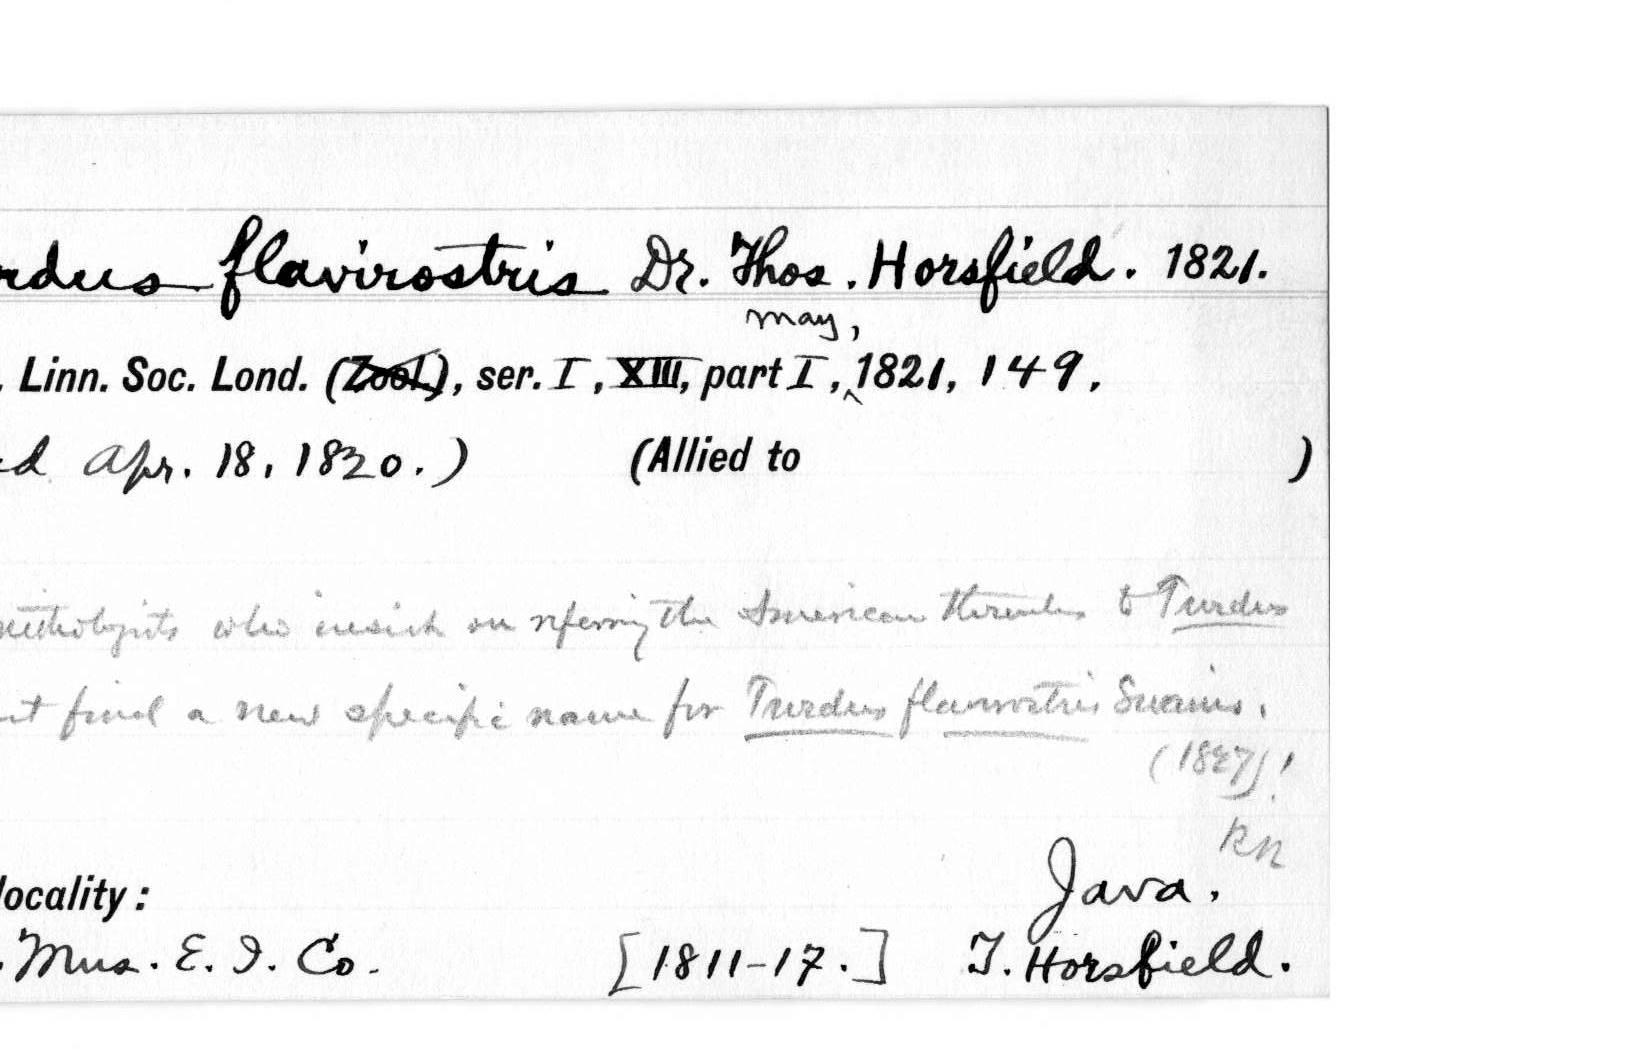 rdus flavirostris Dr. Thos. Horsfield. 1821.
may,
. Linn. Soc. Lond. (Zool.), ser. I, XIII, part I, ^ 1821, 149,
d Apr. 18, 1820.) (Allied to )
who insist on referring the American thrushes to Turdus
find a new specific name for Turdus flavirostris Swains.
(1827)!
RN
locality: Java.
. Mus. E. I. Co. [1811-17.] T. Horsfield.